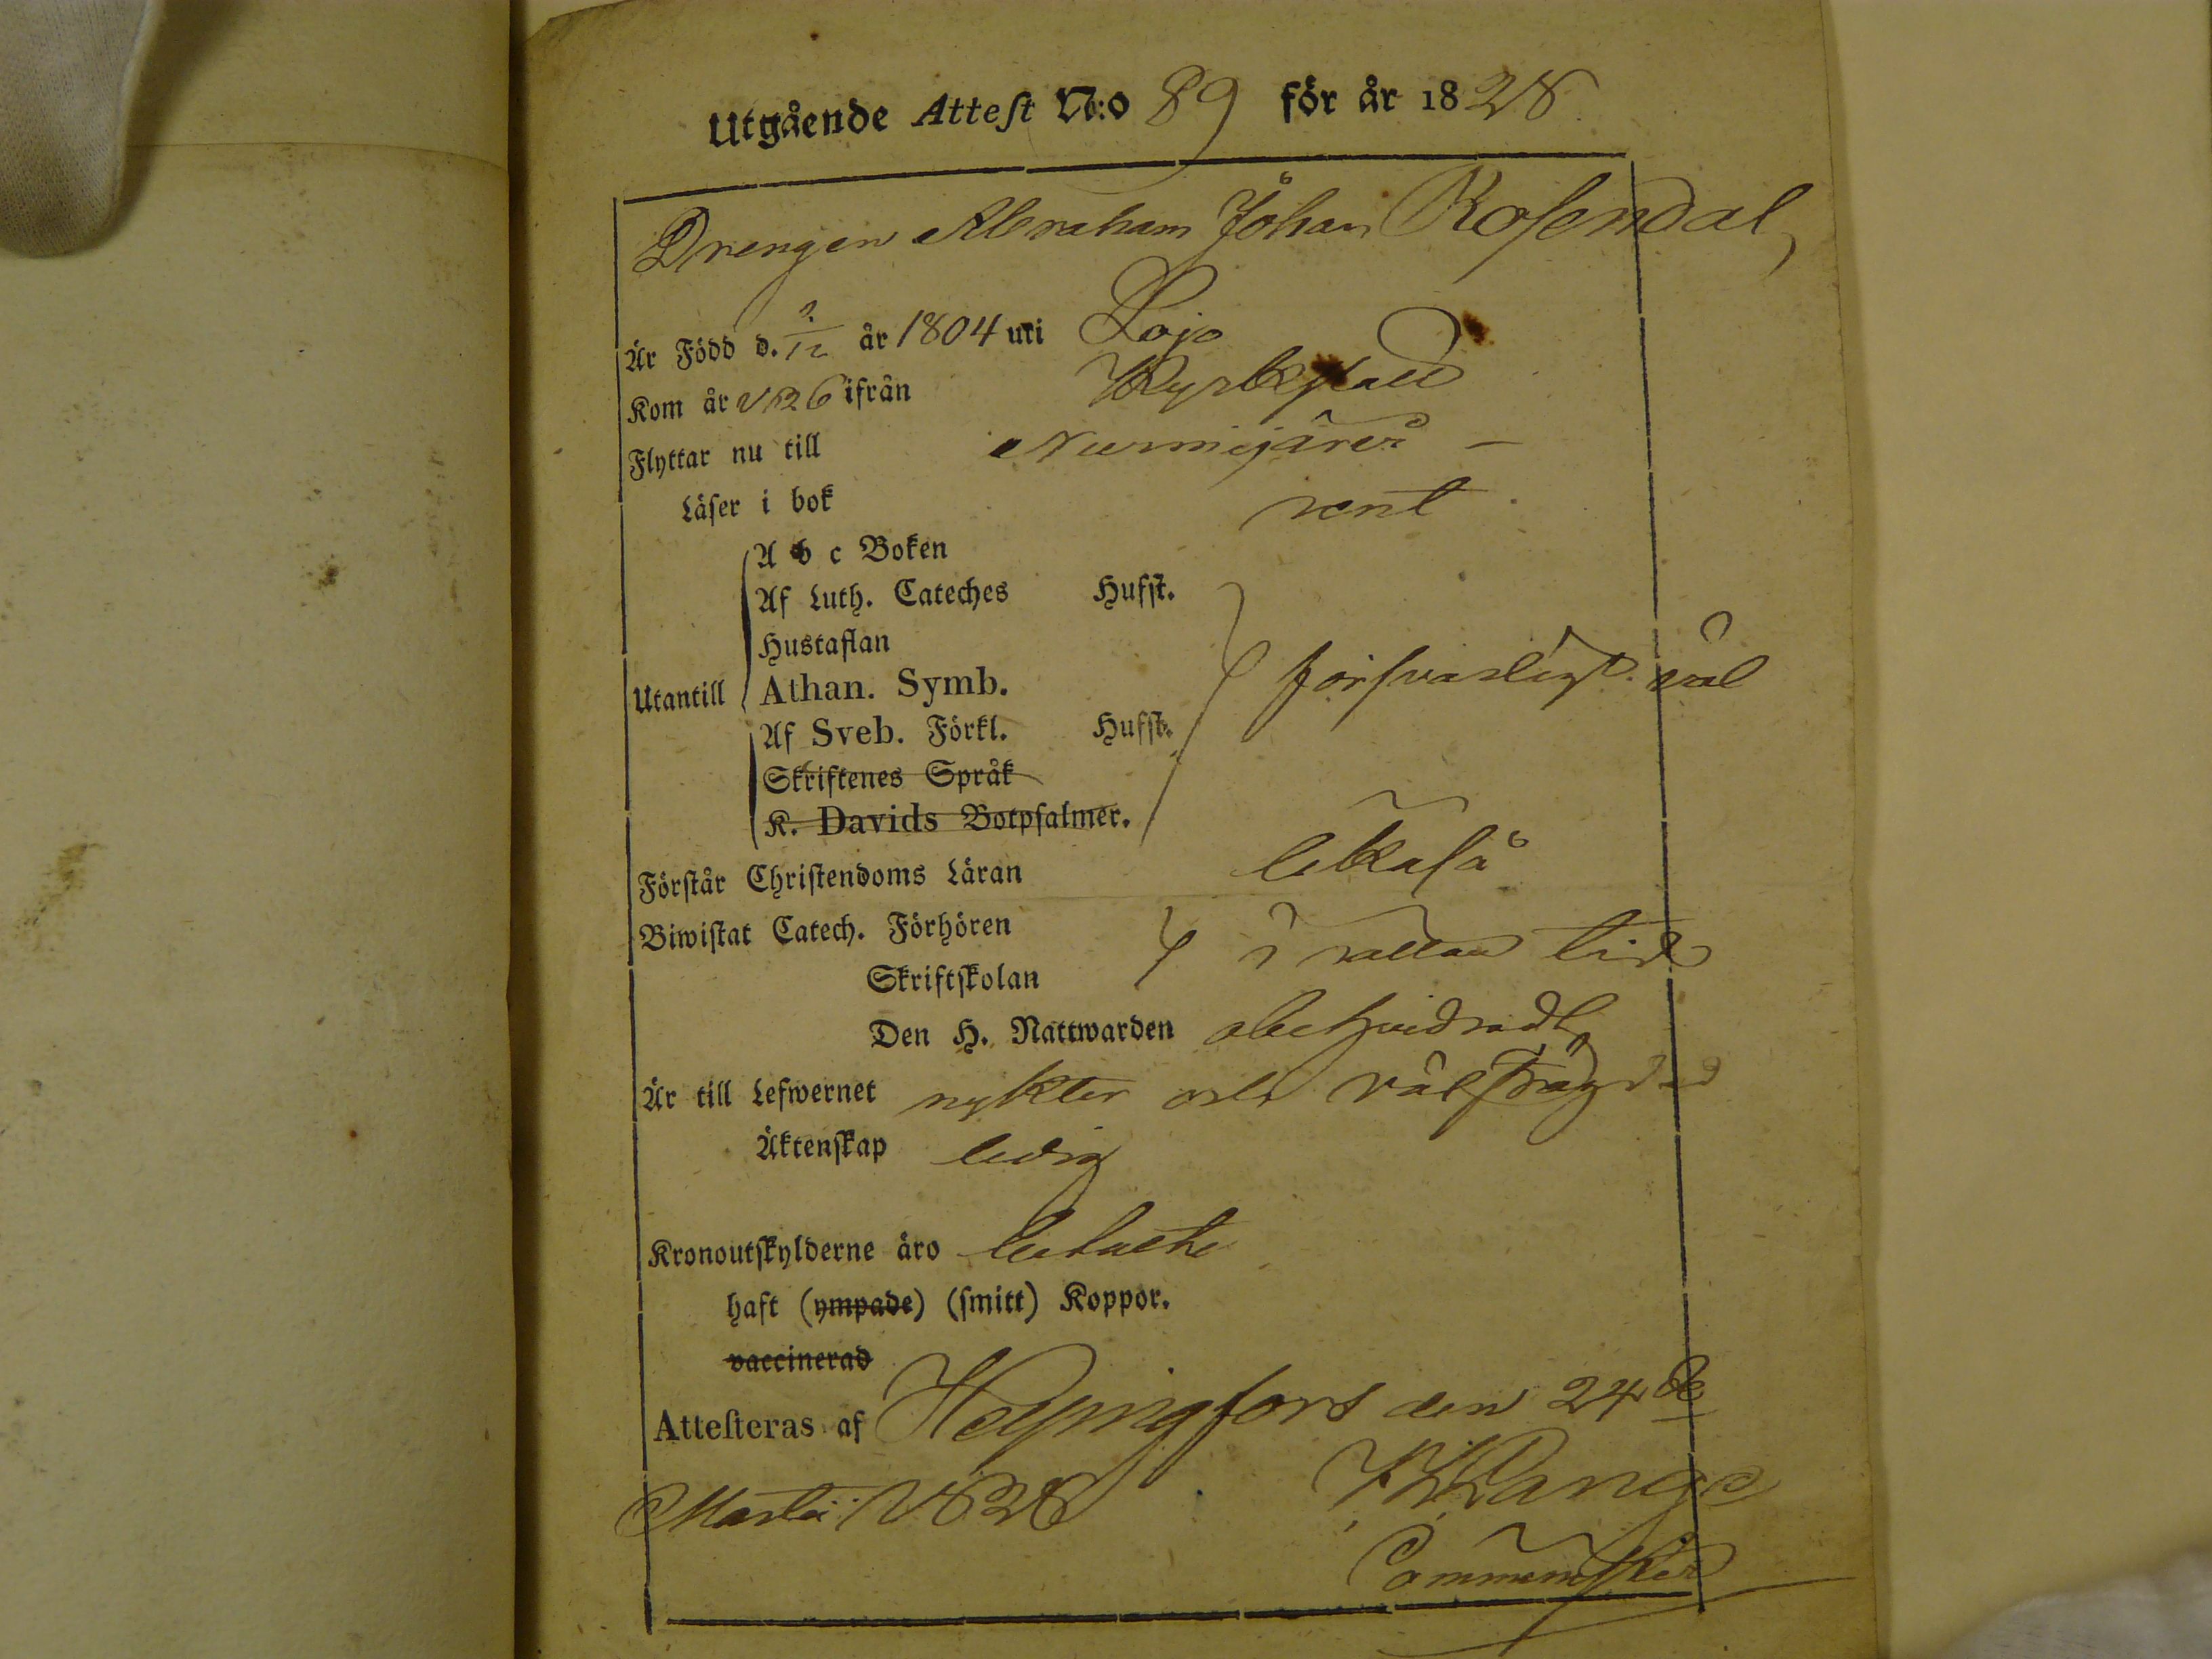 Utgående Attest N:o 89 för år 1828.
Drengen Abraham Johan Rosendal,
Är Född d. 2/12 år 1804 uti Lojo
Kom år 1826 ifrån Kyrkslätt
Flyttar nu till Nurmijärvi –
Läser i bok rent
A b c Boken
Af Luth. Cateches Hufst.
Hustaflan
Utantill Athan. Symb. försvarligt väl
Af Sveb. Förkl. Hufst.
Skriftenes Språk
K. Davids Botpsalmer.
Förstår Christendoms Läran lika så
Biwistat Catech. Förhören i rättan tid
Skriftskolan
Den H. Nattwarden obehindradt
Är till Lefwernet nykter och välfrägdad
Äktenskap ledig
Kronoutskylderne äro betalte
haft (ympade) (smitt) Koppor.
vaccinerad
Attesteras af Helsingfors den 24de
Martii 1828